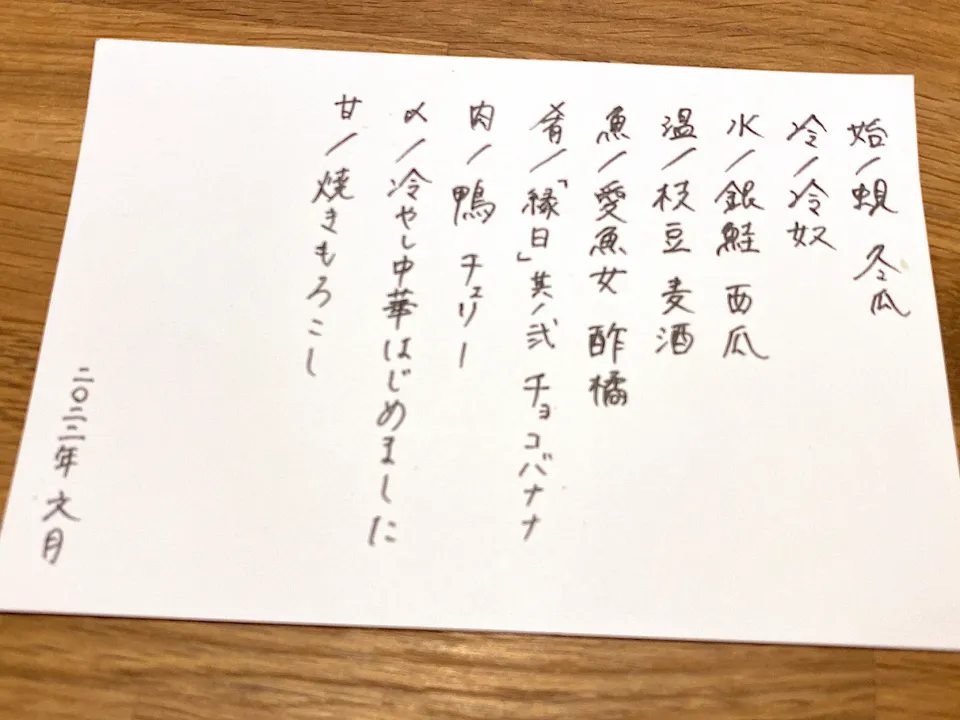 始/蜆 冬瓜
冷/冷奴
水/銀鮭 西瓜
温/枝豆 麦酒
魚/愛魚女 酢橘
肴/「縁日」其ノ弐 チョコバナナ
肉/鴨 チェリー
〆/冷やし中華はじめました
甘/焼きもろこし
二〇二二年 文月